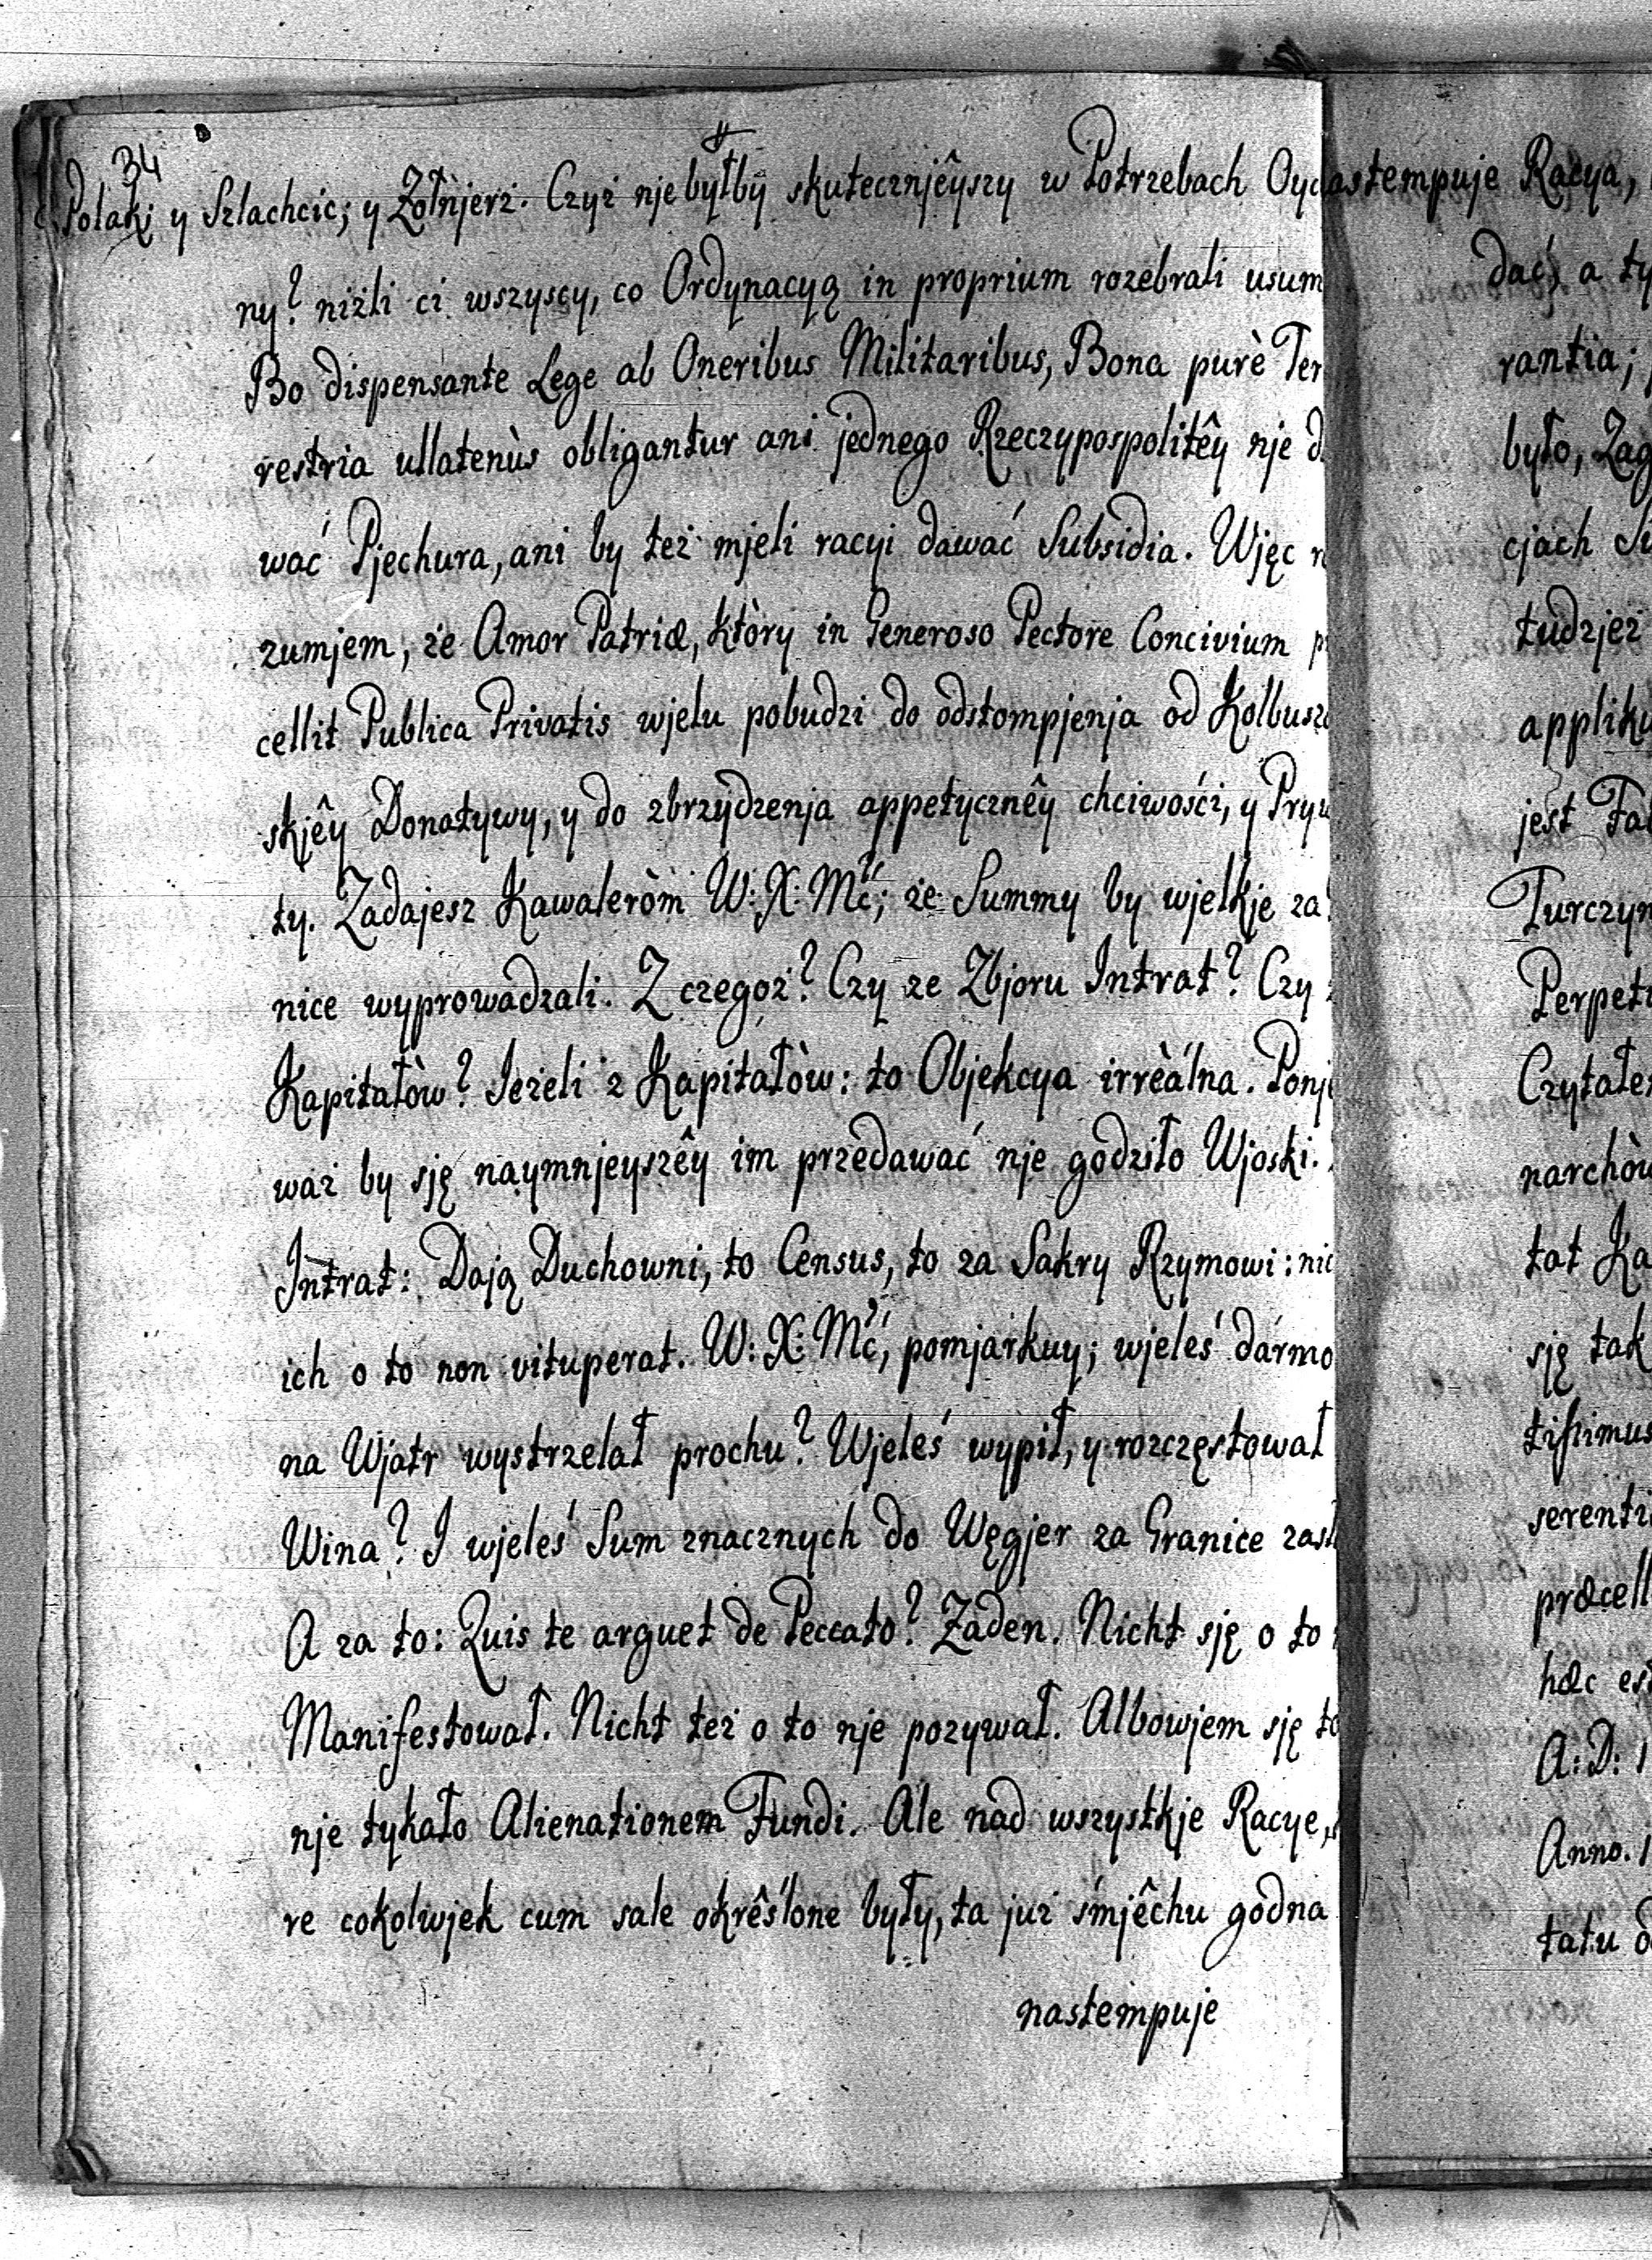 34
Polak; y Szlachcic; y Żołnjerz. Czyż nje byłby skutecznjêyszy w Potrzebach Oyc
ny? niżli ci wszyscy, co Ordynacyą in proprium rozebrali usum
Bo dispensante Lege ab Oneribus Militaribus, Bona purè Ter
restria ullatenùs obligantur ani jednego Rzeczypospolitêy nje d
wać Pjechura, ani by też mjeli racyi dawać Subsidia. Wjęc r
zumjem, że Amor Patriæ, ktòry in Generoso Pectore Concivium p
cellit Publica Privatis wjelu pobudzi do odstompjenja od Kolbusz
skjêy Donatywy, y do zbrzydzenja appetycznêy chciwości, y Pryw
ty. Zadajesz Kawaleròm W: X: Mć; że Summy by wjelkje za
nice wyprowadzali. Z czegoż? Czy ze Zbjoru Intrat? Czy z
Kapitałòw? Ieżeli z Kapitałòw: to Objekcya irrèálna. Ponj
waż by sję naymnjeyszêy im przedawać nje godziło Wjoski.
Intrat: Dają Duchowni, to Census, to za Sakry Rzymowi: nic
ich o to non vituperat. W: X: Mć, pomjarkuy; wjeleś darmo
na Wjatr wystrzelał prochu? Wjeleś wypił, y rozczęstował
Wina? I wjeleś Sum znacznych do Węgjer za Granice zasł
A za to: Quis te arguet de Peccato? Żaden. Nicht sję o to
Manifestował. Nicht też o to nje pozywał. Albowjem sję to
nje tykało Alienationem Fundi. Ale nad wszystkje Racye,
re cokolwjek cum sale okrêślone były, ta już śmjêchu godna
nastempuje
astempuje Racya,
dać, a ty
rantia;
było, Zag
cjach Su
tudzjeż
applika
jest Fal
Turczyn
Perpet
Czytałe
narchòw
tat Ka
sję tak
tissimus
serenti
præcell
hæc es
A: D: 1
Anno. 1
tatu d